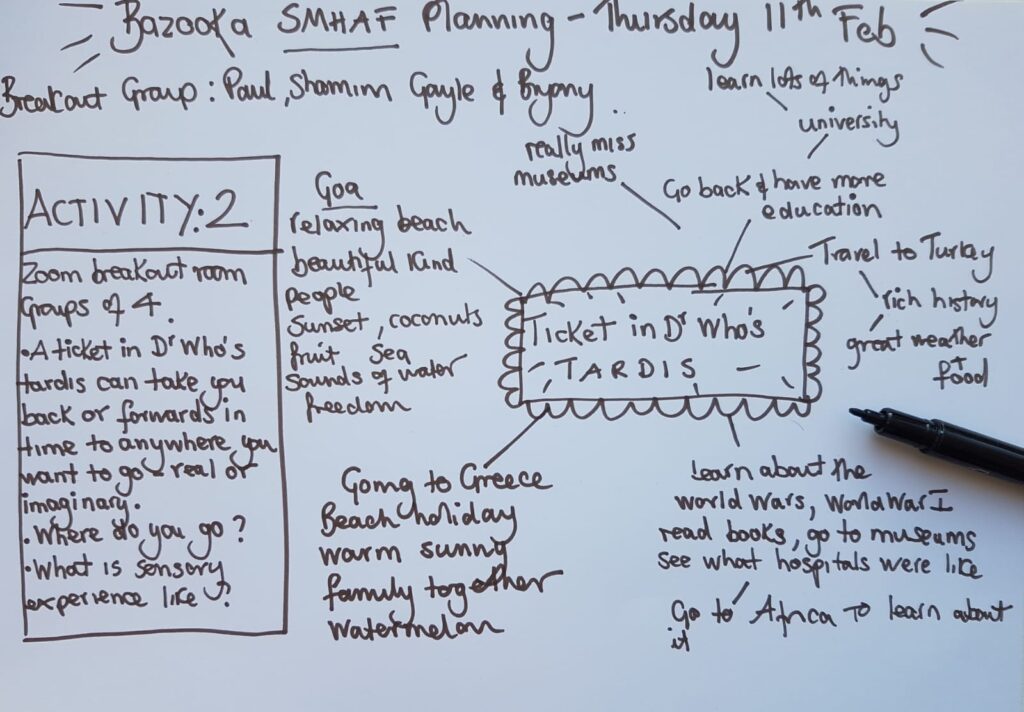 Bazooka SMHAF Planning - Thursday 11th Feb
Breakout Group: Paul, Shamim Gayle & Bryony
ACTIVITY:2
Zoom breakout room
Groups of 4.
• A ticket in Dr Who's
tardis can take you
back or forwards in
time to anywhere you
want to go - real or
imaginary.
• Where do you go?
• What is sensory
experience like?
Goa
relaxing beach
beautiful kind
people
Sunset, coconuts
fruit sea
Sounds of water
freedom
really miss
museums
learn lots of things
university
Go back & have more
education
Travel to Turkey
rich history
great weather
+
food
Ticket in Dr Who's
TARDIS
Going to Greece
Beach holiday
warm sunny
family together
watermelon
Learn about the
world wars, World War I
read books, go to museums
see what hospitals were like
Go to Africa to learn about
it